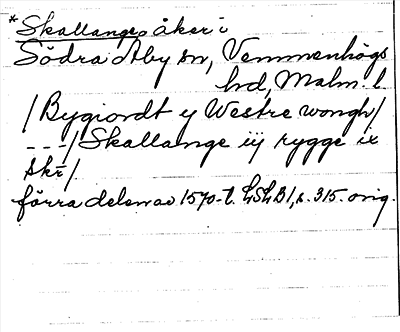 *Skallange, åker i
Södra Åby sn, Vemmenhögs
hd, Malm. l.
/Bygiordt y Westre wongh/
---/Skallange iij rygge ix
skr/
förra delen av 1570-t. LSLB1, s. 315. orig.